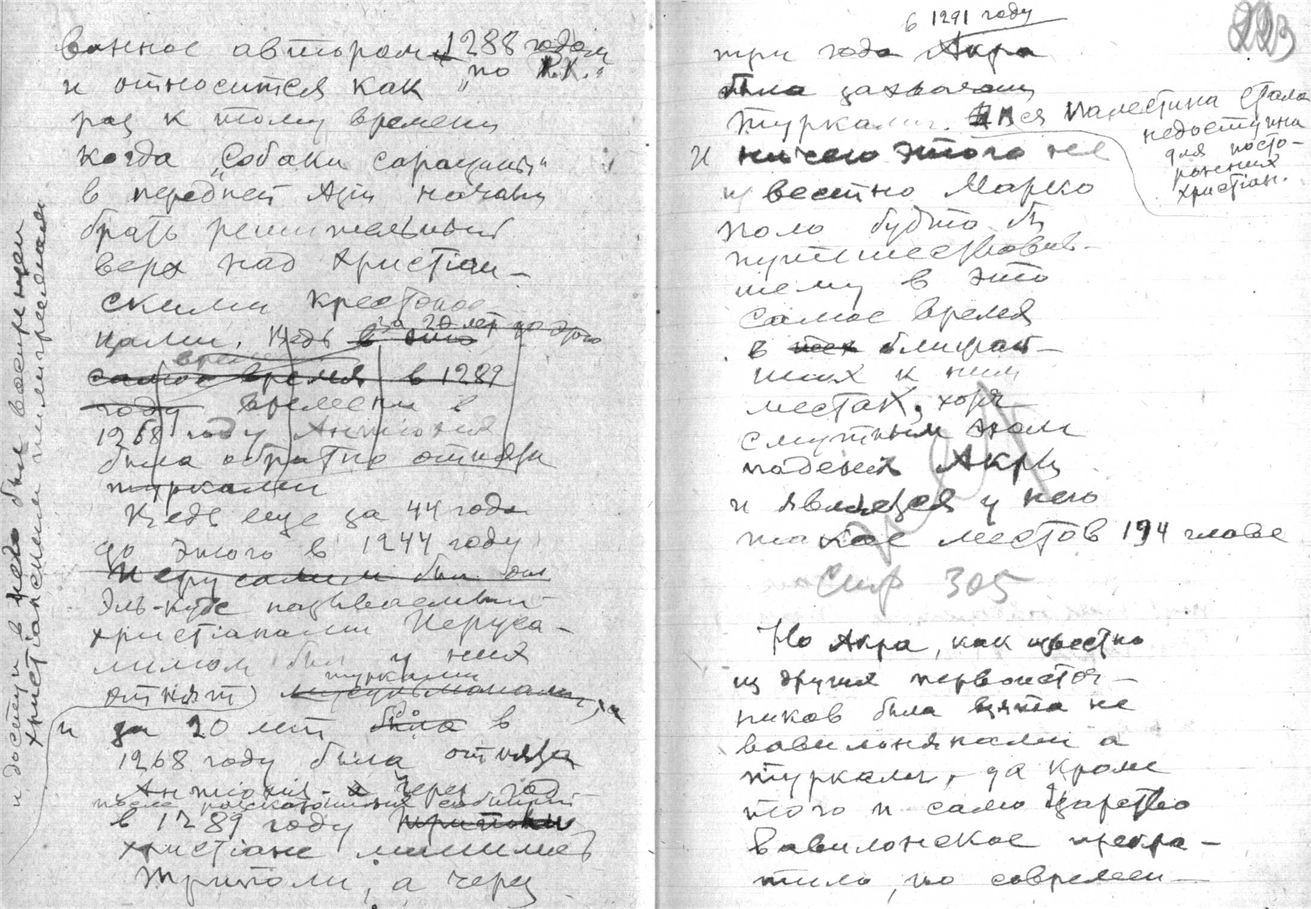 ванное автором 1288 годом
"по Р.Х."
и относится как
раз к тому времени
когда "собаки сарацины"
в передней Азіи начали
брать решительный
верх над Христіан-
скими крестонос-
цами. Ведь в это за 20 лет до этого
самое время в 1289
году времени в
1268 году Антіохія
была обратно отнята
турками
Ведь еще за 44 года
до этого в 1244 году
Іерусалим был
Эль-Кудс называемый
христіанами Иеруса-
лимом был у них
турками
отнят
и за 20 лет было в
1268 году была отнята
Антіохія. а Через год
после
в 1289 году
христіане лишились
Триполи, а через
и доступ в него был воспрещен
христіанским пилигримам
223
в 1291 году
три года Акра
была захвачена
турками. Вся Палестина стала
недоступна
для посто-
ронних
христіан.
И ничего этого не
известно Марко
Поло будто бы
путешествовав-
шему в это
самое время
в всех ближай-
ших к ним
местах, хотя
смутным эхом
падения Акры
и является у него
такое место в 194 главе
Стр 305
Но Акра, как известно
из других первоисточ-
ников была взята не
вавилонянами а
турками, да кроме
того и само Царство
Вавилонское прекра-
тило, по современ-